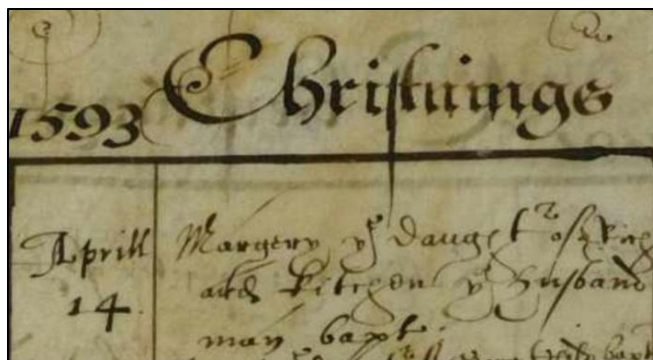 1593 Christnings
Aprill
14
Margery yᵉ daughtʳ of Rich
ard Kitchen yᵉ Husband
man bapt: